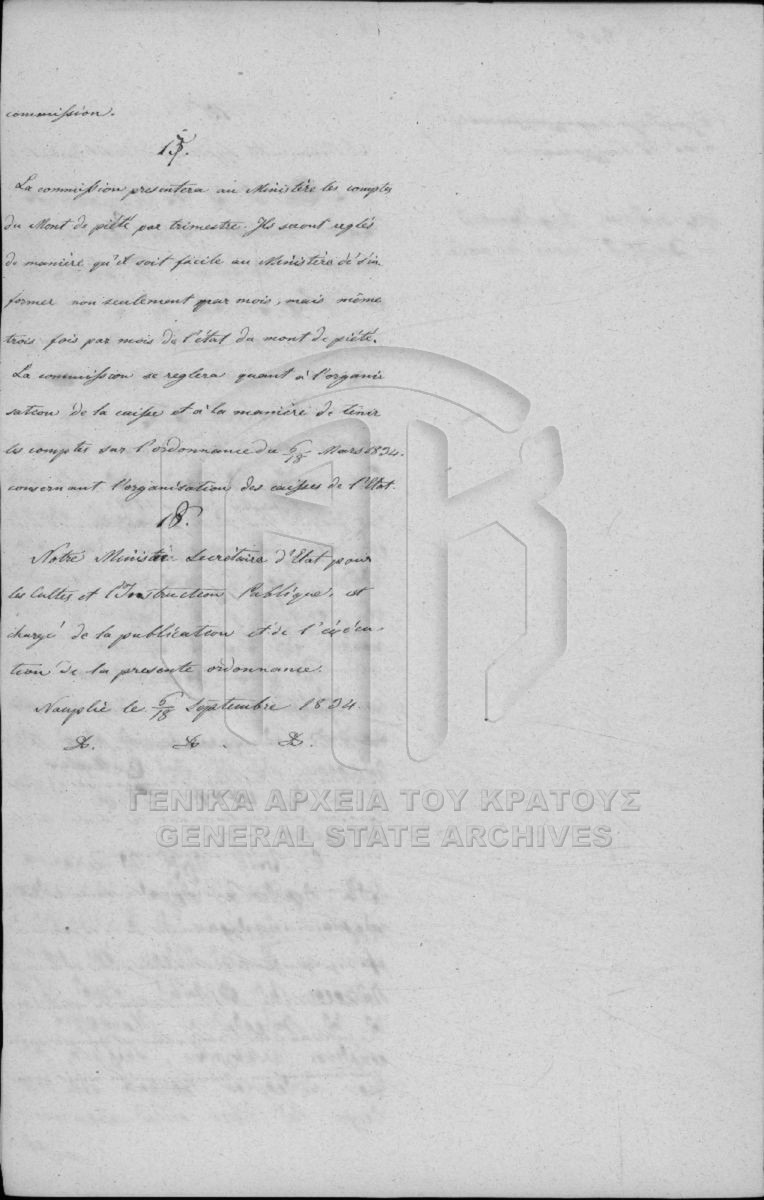 commission.
15.
La commission presentera au Ministère les comptes
du Mont de piété par trimestre. Ils seront reglés
de manière qu'il soit facile au Ministère de s'in
former non seulement par mois, mais même
trois fois par mois de l'état du mont de piété.
La commission se reglera quant à l'organi
sation de la caisse et à la manière de tenir
les comptes sur l'ordonnance du 6/18 Mars 1834.
consernant l'organisation des caisses de l'Etat.
16.
Notre Ministre Secrétaire d'Etat pour
les Cultes et l'Instruction Publique, est
chargé de la publication et de l'exécu
tion de la presente ordonnance.
Nauplie le 6/18 Septembre 1834
ΓΕΝΙΚΑ ΑΡΧΕΙΑ ΤΟΥ ΚΡΑΤΟΥΣ
GENERAL STATE ARCHIVES